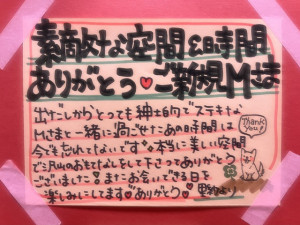 素敵な空間&時間
ありがとう♥ご新規Mさま
出だしからとっても紳士的でステキな
Mさまと一緒に過ごせたあの時間は
今でも忘れてないです。本当に美しい空間
で沢山のおもてなしをして下さってありがとう
ございました!またお会いできる日を
楽しみにしてます♥ありがとう♥
Thank
You!